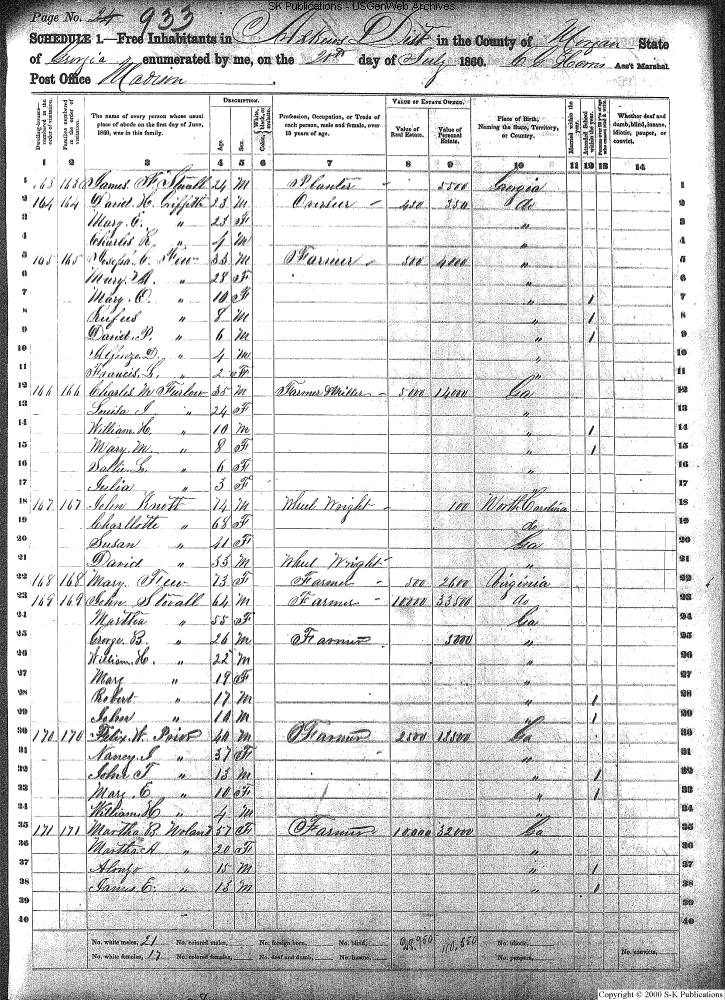 SK Publications - USGenWeb Archives
Page No. 24 933
SCHEDULE 1.—Free Inhabitants in Dist in the County of Morgan State
of Georgia enumerated by me, on the day of July 1860. Ass't Marshal.
Post Office Madison
Dwelling-houses—numbered in the order of visitation.
Families numbered in the order of visitation.
The name of every person whose usual place of abode on the first day of June, 1860, was in this family.
DESCRIPTION.
Age.
Sex.
Color, White, black, or mulatto.
Profession, Occupation, or Trade of each person, male and female, over 15 years of age.
VALUE OF ESTATE OWNED.
Value of Real Estate.
Value of Personal Estate.
Place of Birth, Naming the State, Territory, or Country.
Married within the year.
Attended School within the year.
Whether deaf and dumb, blind, insane, idiotic, pauper, or convict.
1 2 3 4 5 6 7 8 9 10 11 12 13 14
1 163 163 James Stovall 24 M Planter 5500 Georgia 1
2 164 164 David H. Griffith 23 M Overseer 350 do 2
3 Mary E. " 23 F " 3
4 Charles R. " 4 M " 4
5 165 165 Few 33 M Farmer 500 4000 " 5
6 Mary A. " 28 F " 6
7 Mary C. " 10 F " 1 7
8 Rufus " 8 M " 1 8
9 David P. " 6 M " 1 9
10 D. " 4 M " 10
11 Francis L. " 2 F " 11
12 166 166 Charles M Furlow 35 M Farmer & Miller 5000 14000 Ga 12
13 Louisa J. " 24 F " 13
14 William H. " 10 M " 1 14
15 Mary M. " 8 F " 1 15
16 Sallie L. " 6 F " 16
17 Julia " 3 F " 17
18 167 167 John Knott 74 M Wheel Wright 100 North Carolina 18
19 Charllotte " 68 F do 19
20 Susan " 41 F Ga 20
21 David " 33 M Wheel Wright " 21
22 168 168 Mary Few 73 F Farmer 500 2600 Virginia 22
23 169 169 John Stovall 64 M Farmer 10000 33500 do 23
24 Martha " 55 F Ga 24
25 George B. " 26 M Farmer 3000 " 25
26 William H. " 22 M " 26
27 Mary " 19 F " 27
28 Robert " 17 M " 1 28
29 John " 16 M " 1 29
30 170 170 Felix W. Prior 40 M Farmer 2500 18500 Ga 30
31 Nancy J. " 37 F " 31
32 John T. " 13 M " 1 32
33 Mary E. " 10 F " 1 33
34 William H " 4 M " 34
35 171 171 Martha B. Noland 57 F Farmer 10,000 32000 Ga 35
36 Martha A " 20 F " 36
37 Alonzo " 15 M " 1 37
38 James E. " 13 M " 1 38
39 39
40 40
No. white males, 21 No. colored males, No. foreign born, No. blind, No. idiotic,
No. white females, 17 No. colored females, No. deaf and dumb, No. insane, No. paupers, No. convicts,
Copyright © 2000 S-K Publications